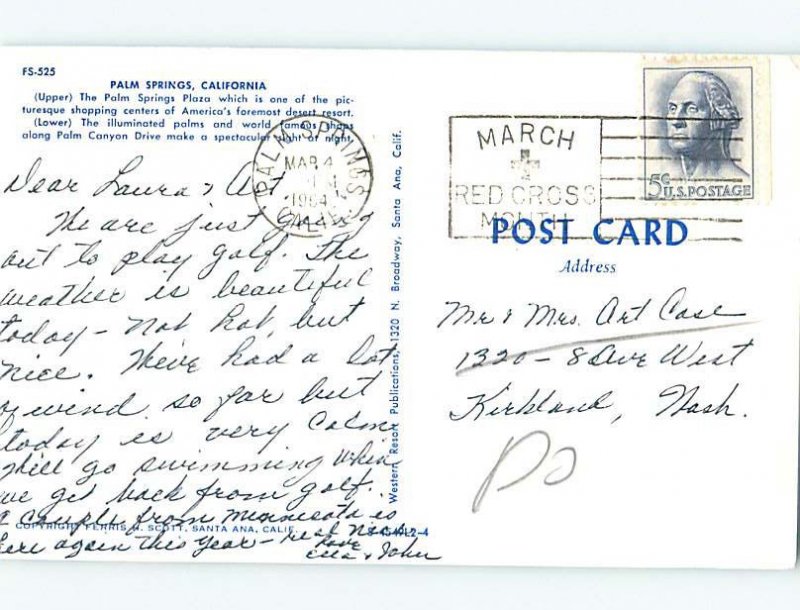 FS-525
PALM SPRINGS, CALIFORNIA
(Upper) The Palm Springs Plaza which is one of the pic-
turesque shopping centers of America's foremost desert resort.
(Lower) The illuminated palms and world famous shops
along Palm Canyon Drive make a spectacular sight at night.
PALM SPRINGS
MAR 4
1964
CALIF.
MARCH
RED CROSS
MONTH
5c U.S. POSTAGE
POST CARD
Address
Dear Laura & Art
We are just going
out to play golf. The
weather is beautiful
today - Not hot, but
nice. We've had a lot
of wind so far but
today is very calm
Will go swimming when
we get back from golf.
a couple from Minnesota is
here again this year - real nice
Love
Ella & John
Mr & Mrs. Art Case
1320 - 8 Ave West
Kirkland, Wash.
PO
Western Resort Publications, 1320 N. Broadway, Santa Ana, Calif.
COPYRIGHT FERRIS H. SCOTT, SANTA ANA, CALIF.